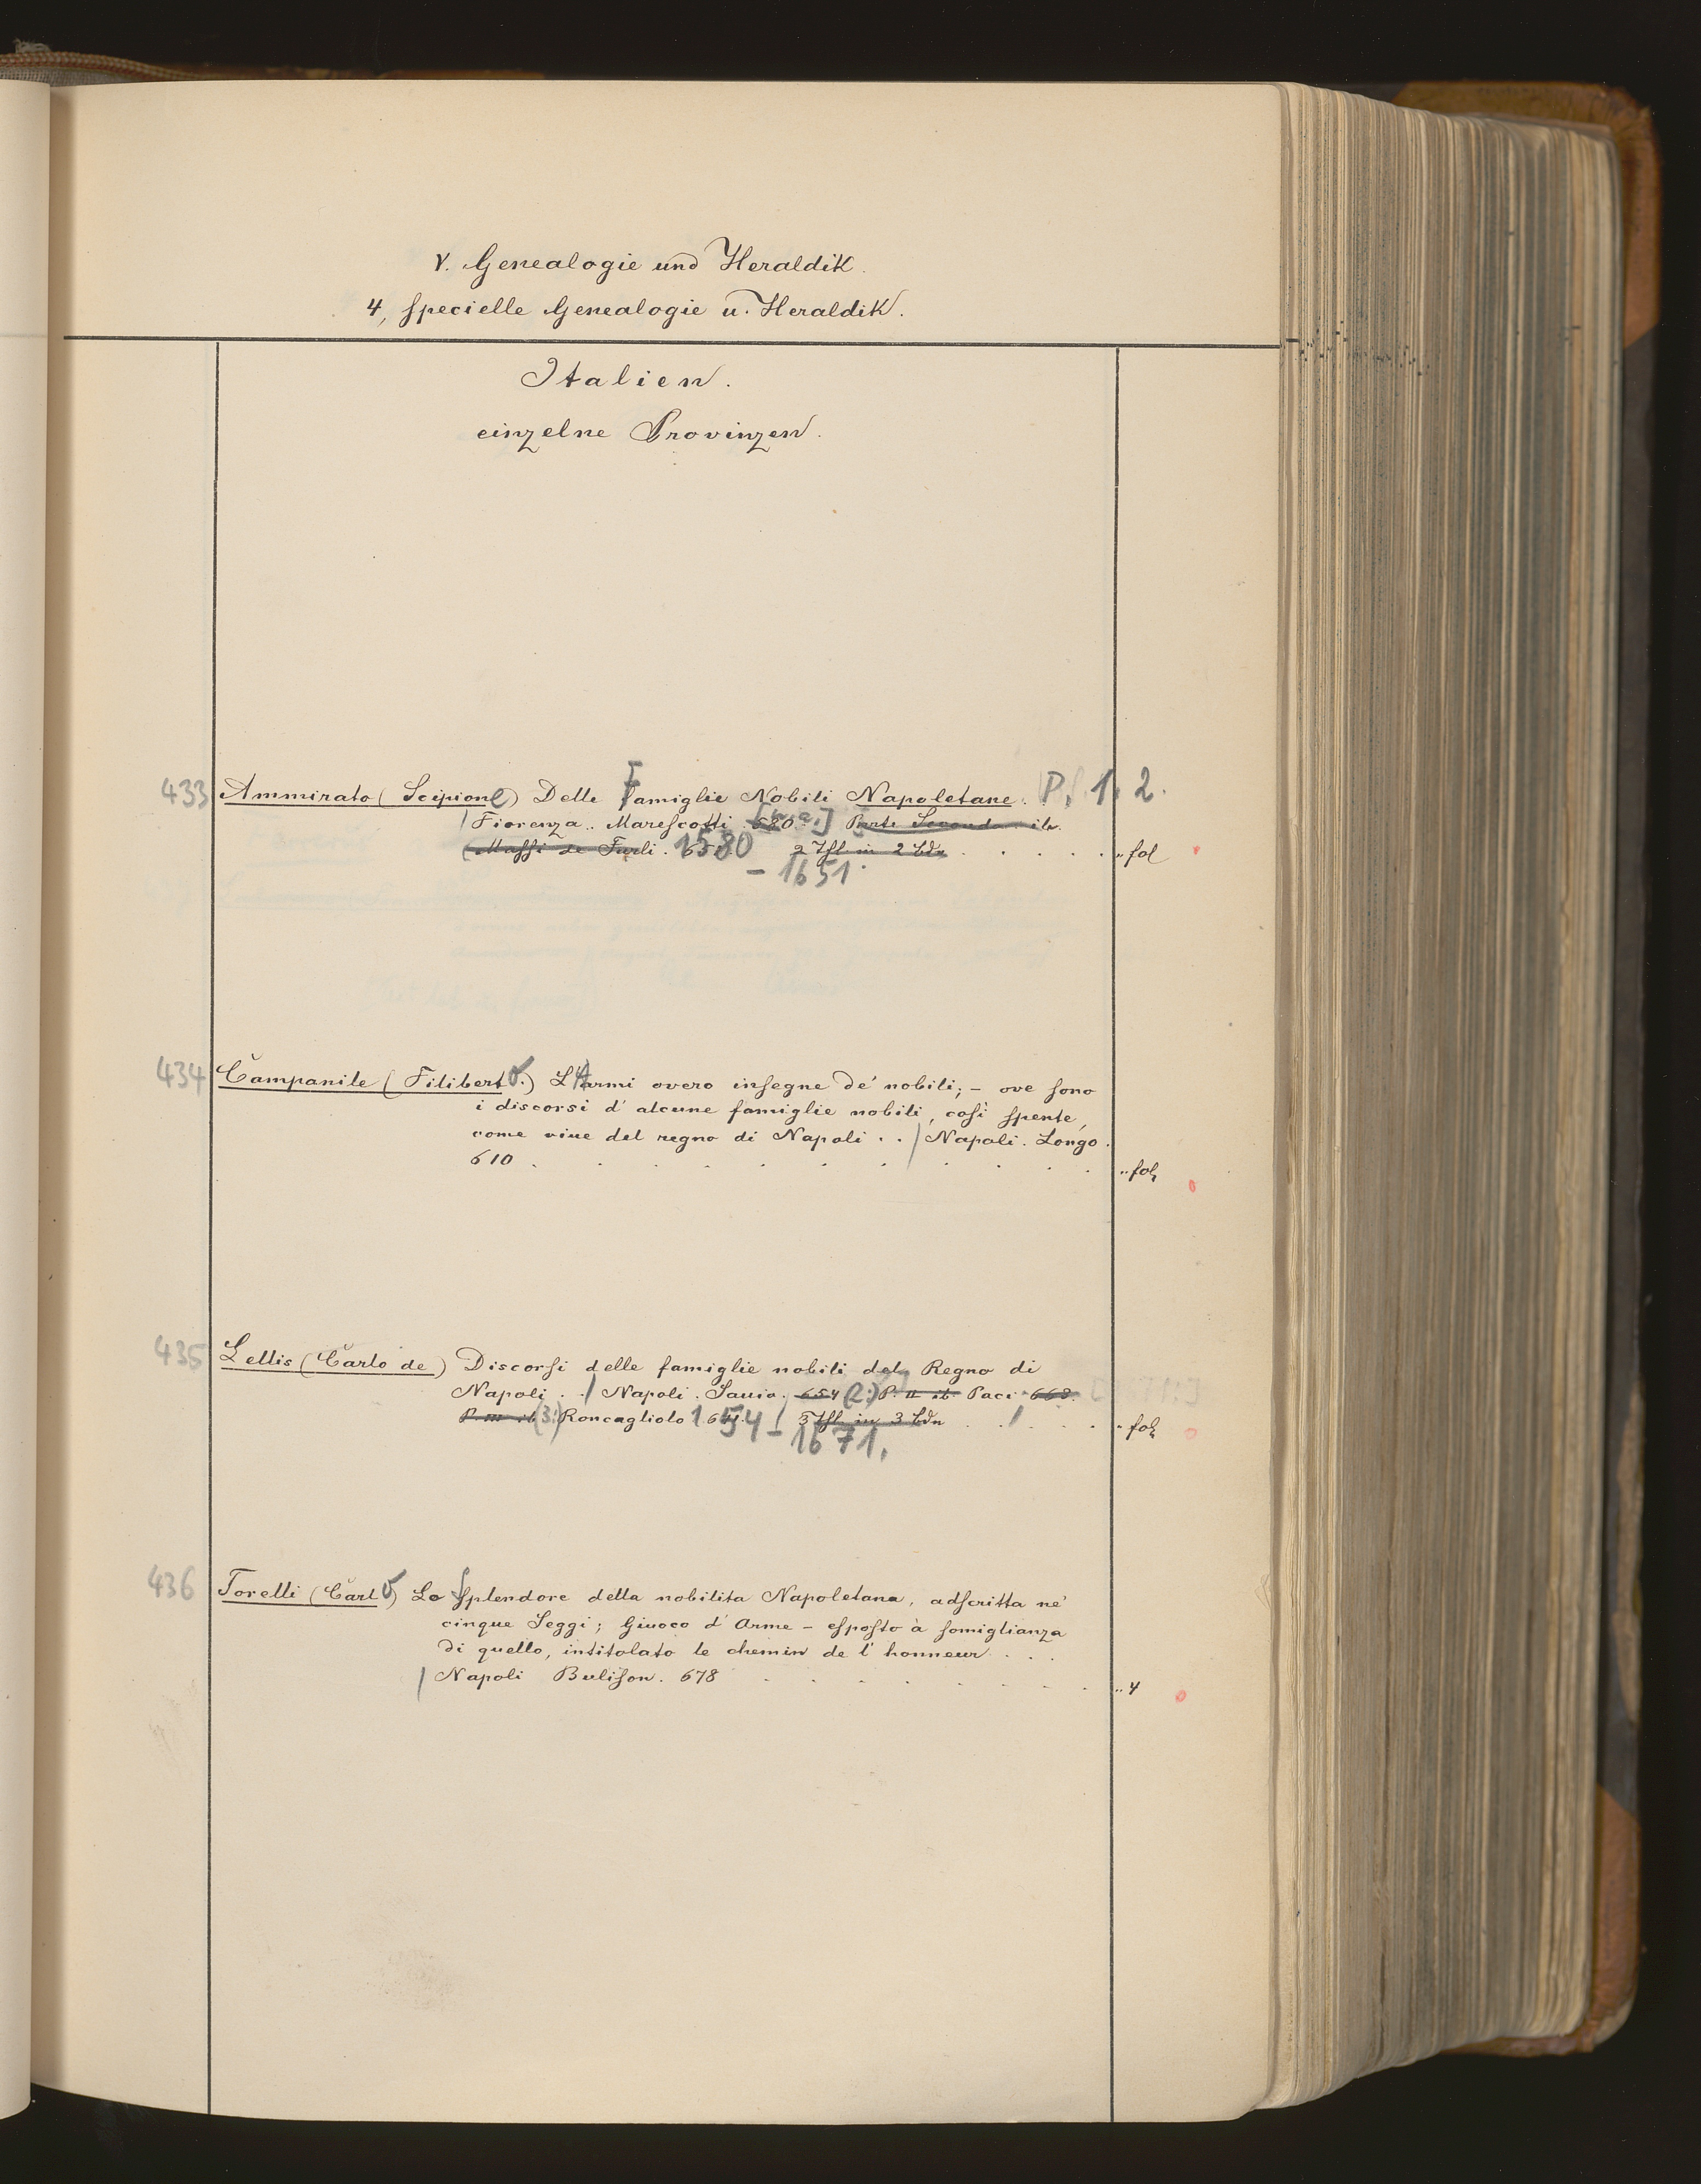 V. Genealogie und Heraldik.
4, specielle Genealogie u. Heraldik.
Italien.
einzelne Provinzen.
433 Ammirato (Scipione) Delle Famiglie Nobili Napoletane. P. 1. 2.
Fiorenza.. Marescotti 580. Parte Seconda ib.
(Massi de Furli. 1580 2 Thl in 2 Bdn . . . . . „ fol
– 1651.
434 Campanile (Filiberto.) L'Armi overo insegne de' nobili; – ove sono
i discorsi d' alcune famiglie nobili, così spente,
come viue del regno di Napoli . . / Napoli. Longo.
610 . . . . . . . . . . „ fol,
435 Lellis (Carlo de) Discorsi delle famiglie nobili del Regno di
Napoli . . / Napoli. Sauio. 654 (2:) P. II ib. Paci 663.
P. III ib. (3:) Roncagliolo 1654 – 3 Thl in 3 Bdn . . . . „ fol,
1671.
436 Torelli (Carlo) Lo splendore della nobilita Napoletana, adscritta ne'
cinque Seggi; Giuoco d' Arme – esposto à somiglianza
di quello, intitolato le chemin de l' honneur . . .
/ Napoli Bulison. 678 . . . . . . . „ 4